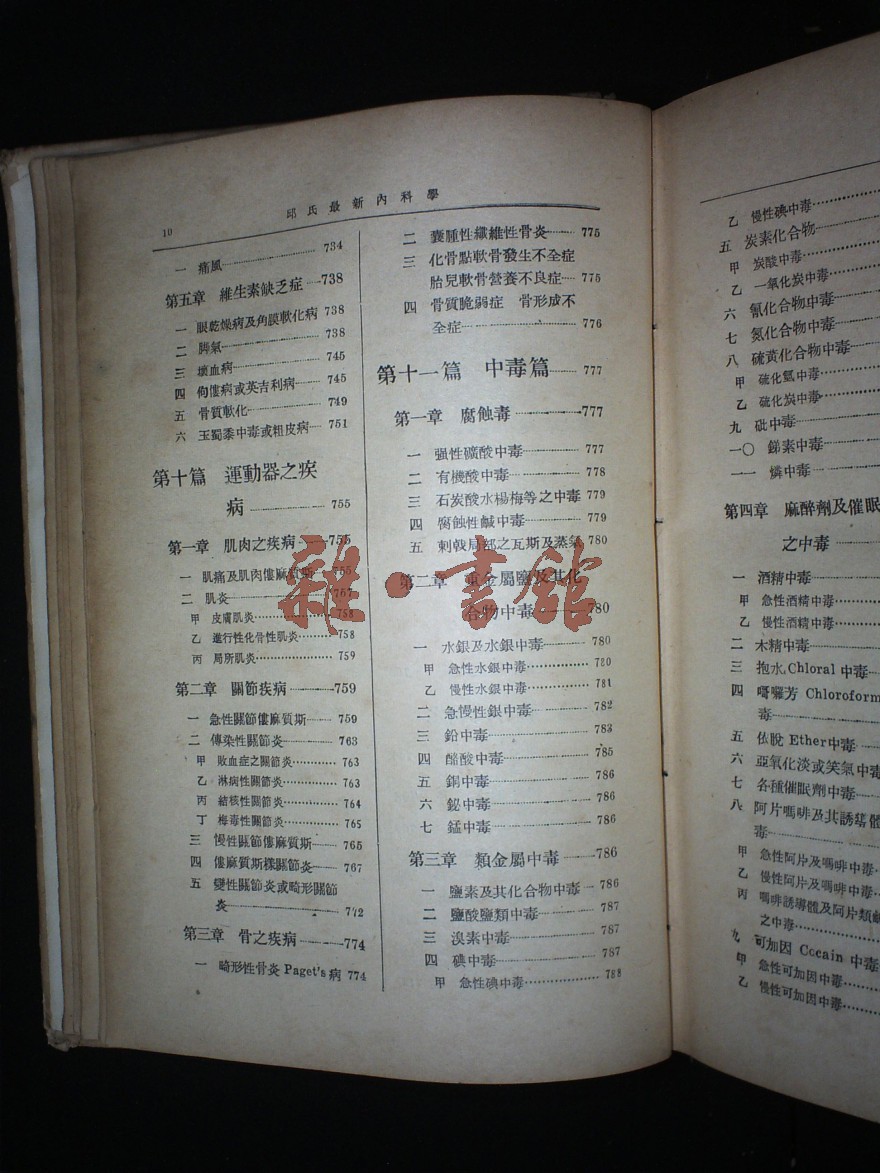 10
邱氏最新內科學
一 痛風 734
第五章 維生素缺乏症 738
一 眼乾燥病及角膜軟化病 738
二 脚氣 738
三 壞血病 745
四 佝僂病或英吉利病 745
五 骨質軟化 749
六 玉蜀黍中毒或粗皮病 751
第十篇 運動器之疾
病 755
第一章 肌肉之疾病 755
一 肌痛及肌肉僂麻質斯 755
二 肌炎 757
甲 皮膚肌炎 758
乙 進行性化骨性肌炎 758
丙 局所肌炎 759
第二章 關節疾病 759
一 急性關節僂麻質斯 759
二 傳染性關節炎 763
甲 敗血症之關節炎 763
乙 淋病性關節炎 763
丙 結核性關節炎 764
丁 梅毒性關節炎 765
三 慢性關節僂麻質斯 765
四 僂麻質斯樣關節炎 767
五 變性關節炎或畸形關節
炎 772
第三章 骨之疾病 774
一 畸形性骨炎 Paget's 病 774
二 囊腫性纖維性骨炎 775
三 化骨點軟骨發生不全症
胎兒軟骨營養不良症 775
四 骨質脆弱症 骨形成不
全症 776
第十一篇 中毒篇 777
第一章 腐蝕毒 777
一 强性礦酸中毒 777
二 有機酸中毒 778
三 石炭酸水楊梅等之中毒 779
四 腐蝕性鹹中毒 779
五 刺戟局部之瓦斯及蒸氣 780
第二章 重金屬鹽及其化
合物中毒 780
一 水銀及水銀中毒 780
甲 急性水銀中毒 780
乙 慢性水銀中毒 781
二 急慢性銀中毒 782
三 鉛中毒 783
四 醋酸中毒 785
五 銅中毒 786
六 鉍中毒 786
七 錳中毒 786
第三章 類金屬中毒 786
一 鹽素及其化合物中毒 786
二 鹽酸鹽類中毒 787
三 溴素中毒 787
四 碘中毒 787
甲 急性碘中毒 788
雜·書館
乙 慢性碘中毒
五 炭素化合物
甲 炭酸中毒
乙 一氧化炭中毒
六 氰化合物中毒
七 氮化合物中毒
八 硫黃化合物中毒
甲 硫化氫中毒
乙 硫化炭中毒
九 砒中毒
一〇 銻素中毒
一一 燐中毒
第四章 麻醉劑及催眠
之中毒
一 酒精中毒
甲 急性酒精中毒
乙 慢性酒精中毒
二 木精中毒
三 抱水 Chloral 中毒
四 嚼囉芳 Chloroform
毒
五 依脫 Ether 中毒
六 亞氧化淡或笑氣中毒
七 各種催眠劑中毒
八 阿片嗎啡及其誘導體
毒
甲 急性阿片及嗎啡中毒
乙 慢性阿片及嗎啡中毒
丙 嗎啡誘導體及阿片類鹼
之中毒
九 可加因 Cocain 中毒
甲 急性可加因中毒
乙 慢性可加因中毒